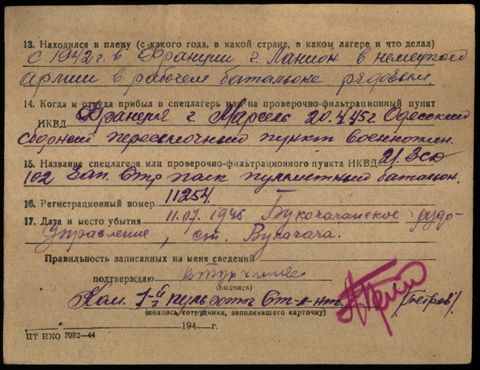 13. Находился в плену (с какого года, в какой стране, в каком лагере и что делал)
с 1942 г. в Франции г. Ланион в немецкой
армии в рабочем батальоне рядовым.
14. Когда и откуда прибыл в спецлагерь или на проверочно-фильтрационный пункт
НКВД Франция г Марсель 20.4.45г. Одесский
сборный пересылочный пункт военноплен.
15. Название спецлагеря или проверочно-фильтрационного пункта НКВД 21. Зсд
102 Зап. Стр полк пулеметный батальон.
16. Регистрационный номер 11254.
17. Дата и место убытия 11.07.1945 Букачачинское рудо-
управление, ст. Букачача.
Правильность записанных на меня сведений
подтверждаю
(подпись)
Ком. пуль роты Ст-л-нт (Петров).
(подпись сотрудника, заполнявшего карточку)
194 г.
ПТ НКО 7032—44